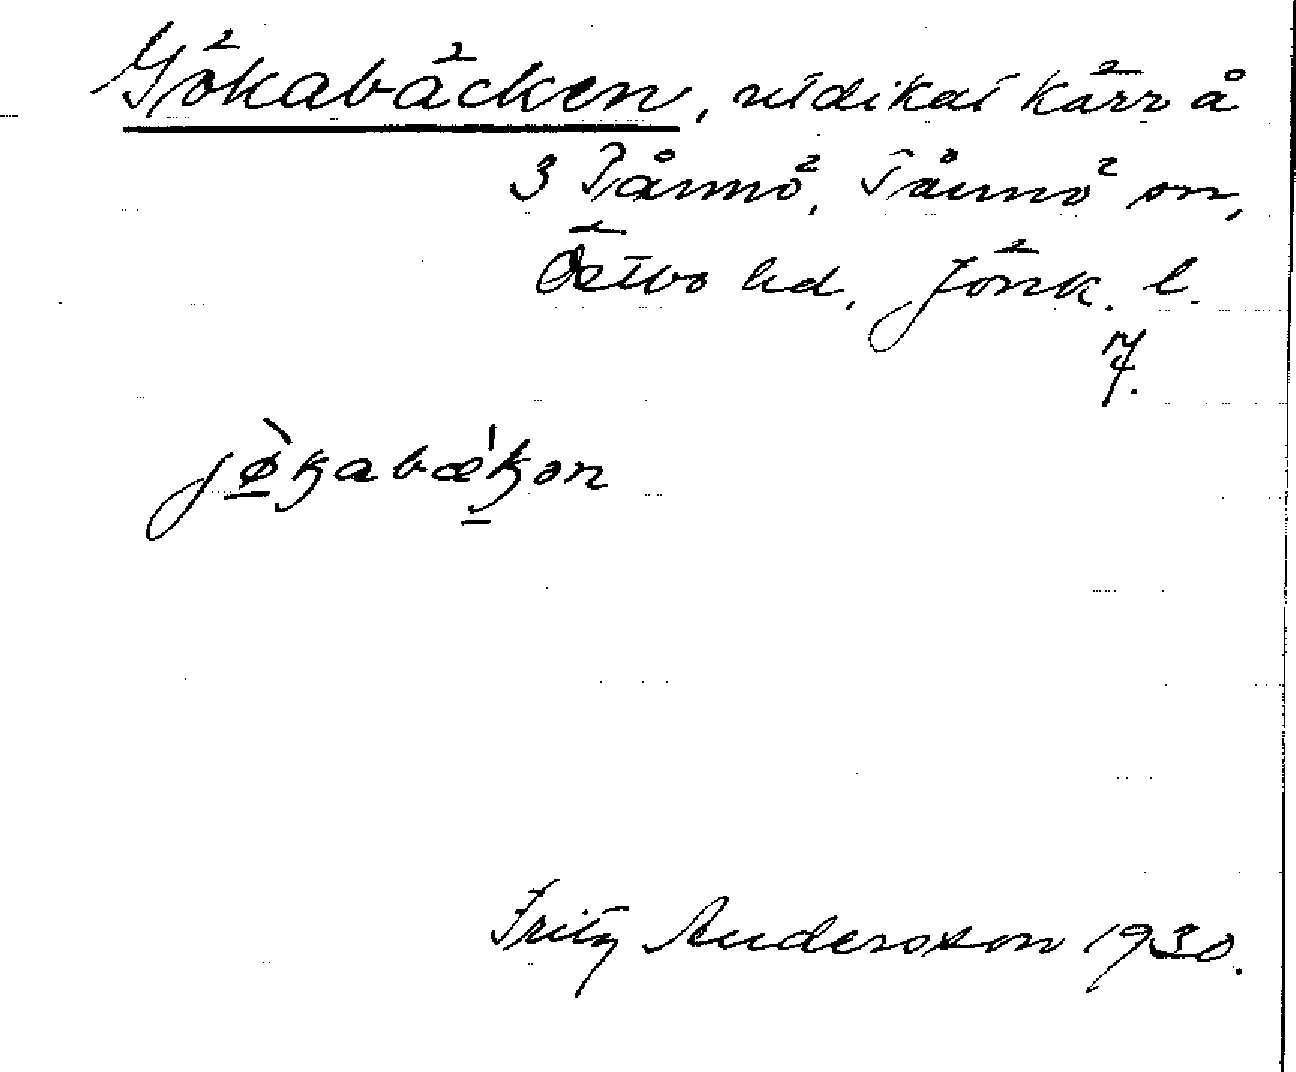 Gökabäcken, utdikat kärr å
3 Tånnö, Tånnö sn,
Östbo hd, Jönk. l.
7.
Fritz Andersson 1930.